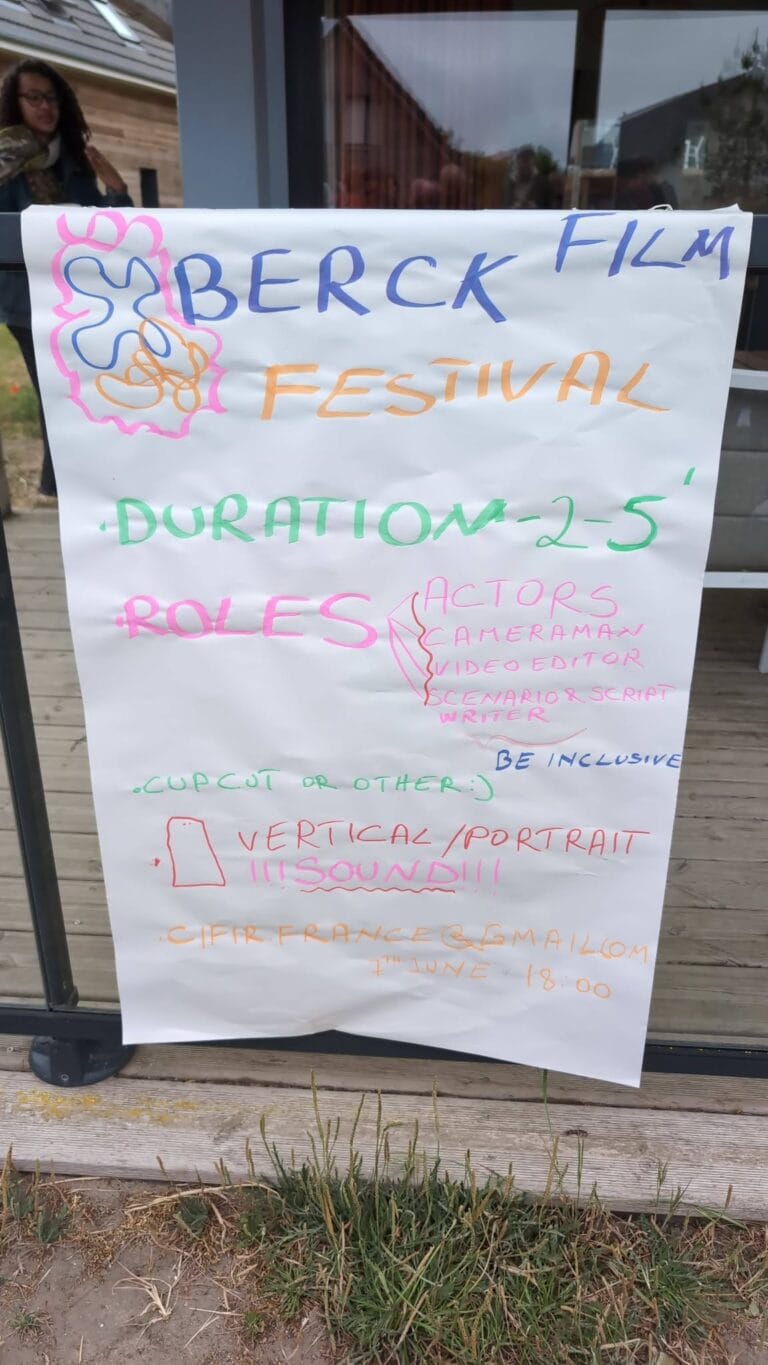 BERCK FILM
FESTIVAL
• DURATION - 2 - 5'
• ROLES
ACTORS
CAMERAMAN
VIDEO EDITOR
SCENARIO & SCRIPT
WRITER
BE INCLUSIVE
• CUPCUT OR OTHER :)
• VERTICAL / PORTRAIT
!!! SOUND !!!
• CIFIR.FRANCE@GMAIL.COM
JUNE 18:00